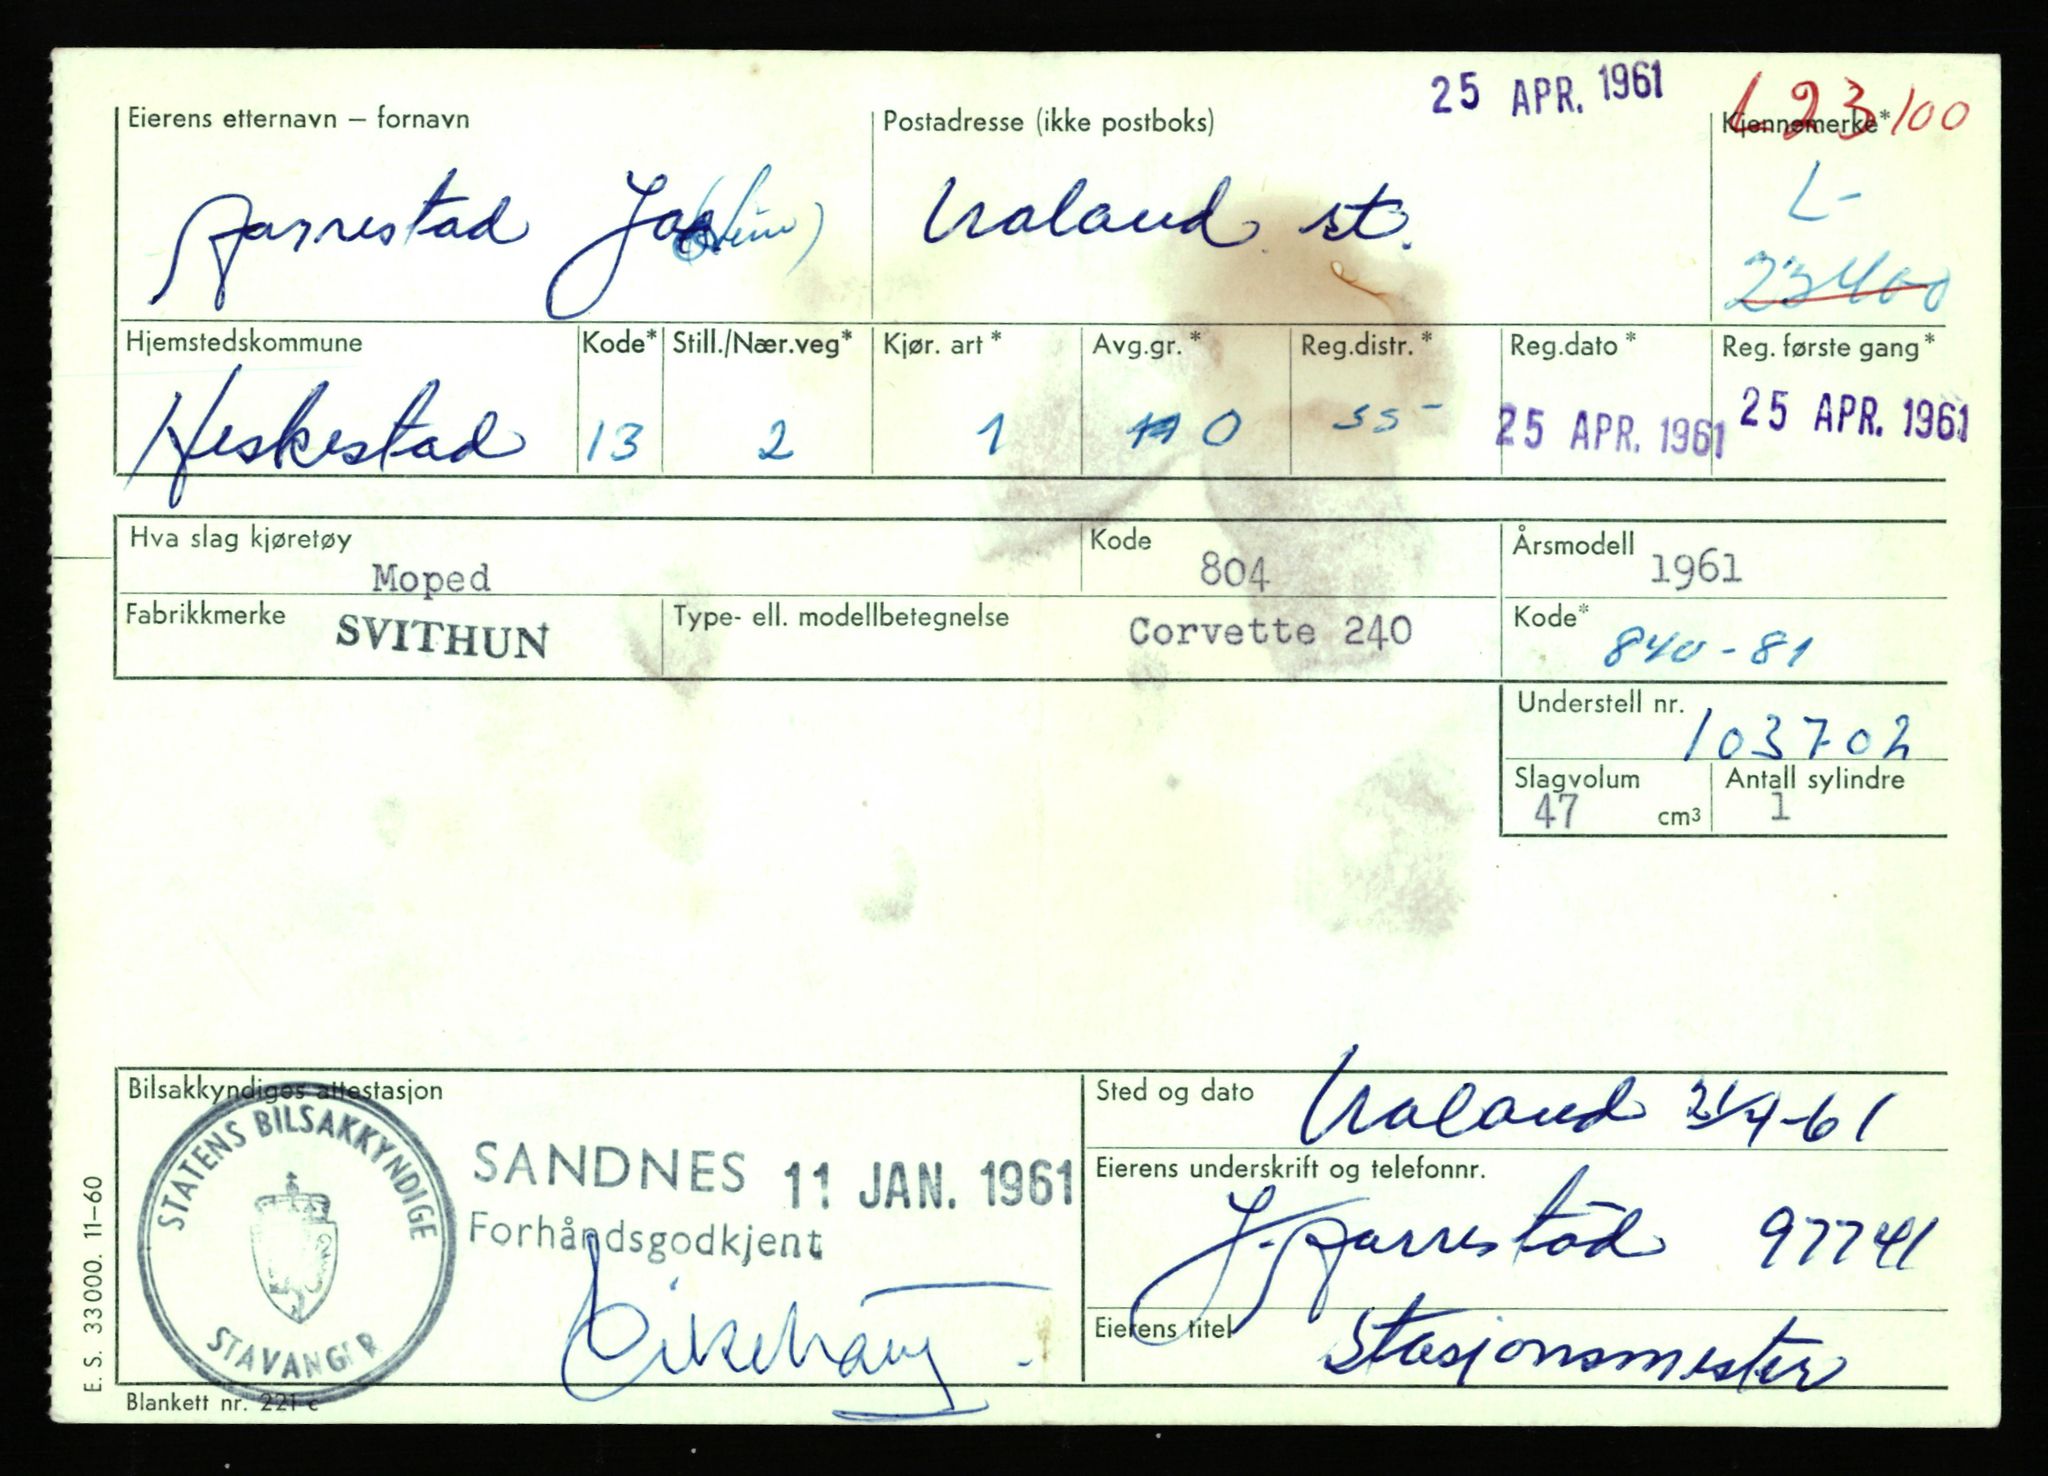 25 APR. 1961
L 23100
Eierens etternavn – fornavn
Postadresse (ikke postboks)
Kjennemerke*
Aarrestad
Ualand st.
L-
23400
Hjemstedskommune
Kode*
Still./Nær.veg*
Kjør. art *
Avg.gr. *
Reg.distr. *
Reg.dato *
Reg. første gang *
Heskestad
13
2
1
0
55-
25 APR. 1961
25 APR. 1961
Hva slag kjøretøy
Moped
Kode
804
Årsmodell
1961
Fabrikkmerke
SVITHUN
Type- ell. modellbetegnelse
Corvette 240
Kode*
840-81
Understell nr.
103702
Slagvolum
47
cm3
Antall sylindre
1
Bilsakkyndiges attestasjon
STATENS BILSAKKYNDIGE
STAVANGER
SANDNES 11 JAN. 1961
Forhåndsgodkjent
Sted og dato
Ualand 21/4-61
Eierens underskrift og telefonnr.
J. Aarrestad 97741
Eierens titel
Stasjonsmester
E. S. 33000. 11–60
Blankett nr. 221 c